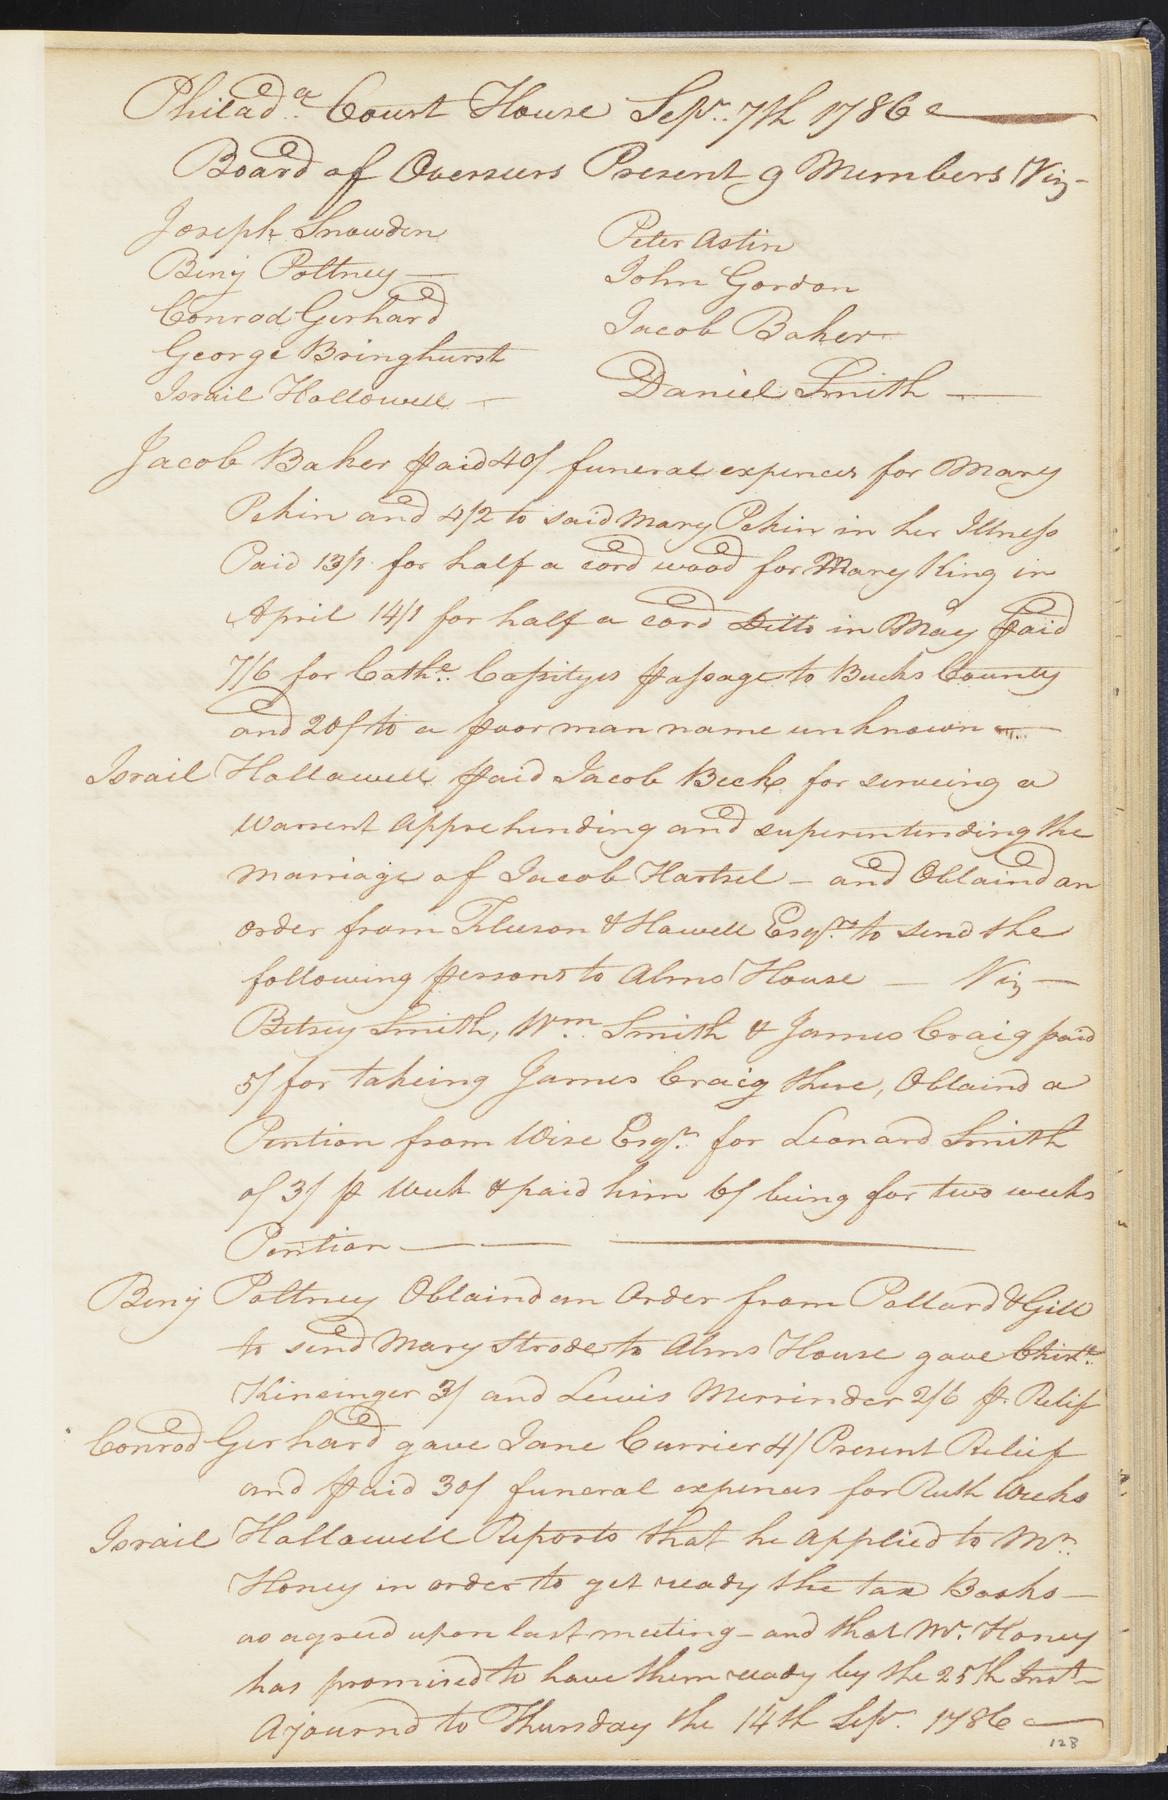 Philad.a Court House Sepr. 7th 1786
Board of Overseers Present 9 Members Viz-
Joseph Snowden
Benj Poltney —
Conrod Gerhard
George Bringhurst
Israil Hallowell —
Peter Astin
John Gordon
Jacob Baker
Daniel Smith —
Jacob Baker paid 40/ funeral expences for Mary
Pekin and 4/2 to said Mary Pekin in her Illness
Paid 13/1 for half a cord wood for Mary King in
April 14/1 for half a cord Ditto in May paid
7/6 for Cathe. Cassityes passage to Bucks County
and 20/ to a poor man name unknown —
Israil Hallawell paid Jacob Beck for serveing a
Warrent Apprehending and superintending the
marriage of Jacob Hartsel - and Obtaind an
order from & Howell Esqrs. to send the
following persons to Alms House — Viz —
Betsey Smith, Wm. Smith & James Craig paid
5/ for takeing James Craig there, Obtaind a
Pention from Wise Esqr. for Leonard Smith
of 3/ p Week & paid him 6/ being for two weeks
Pention —
Benj Poltney Obtaind an Order from Pollard & Gill
to send Mary Strode to Alms House gave
Kinsinger 3/ and Lewis Merrinder 2/6 p. Relif
Conrod Gerhard gave Jane Currier 4/ Present Relief
and paid 30/ funeral expences for Ruth Weeks
Israil Hallawell Reports that he applied to Mr.
Honey in order to get ready the tax Books —
as agreed upon last meeting - and that Mr. Honey
has promised to have them ready by the 25th Inst -
Ajournd to Thursday the 14th Sepr. 1786
128